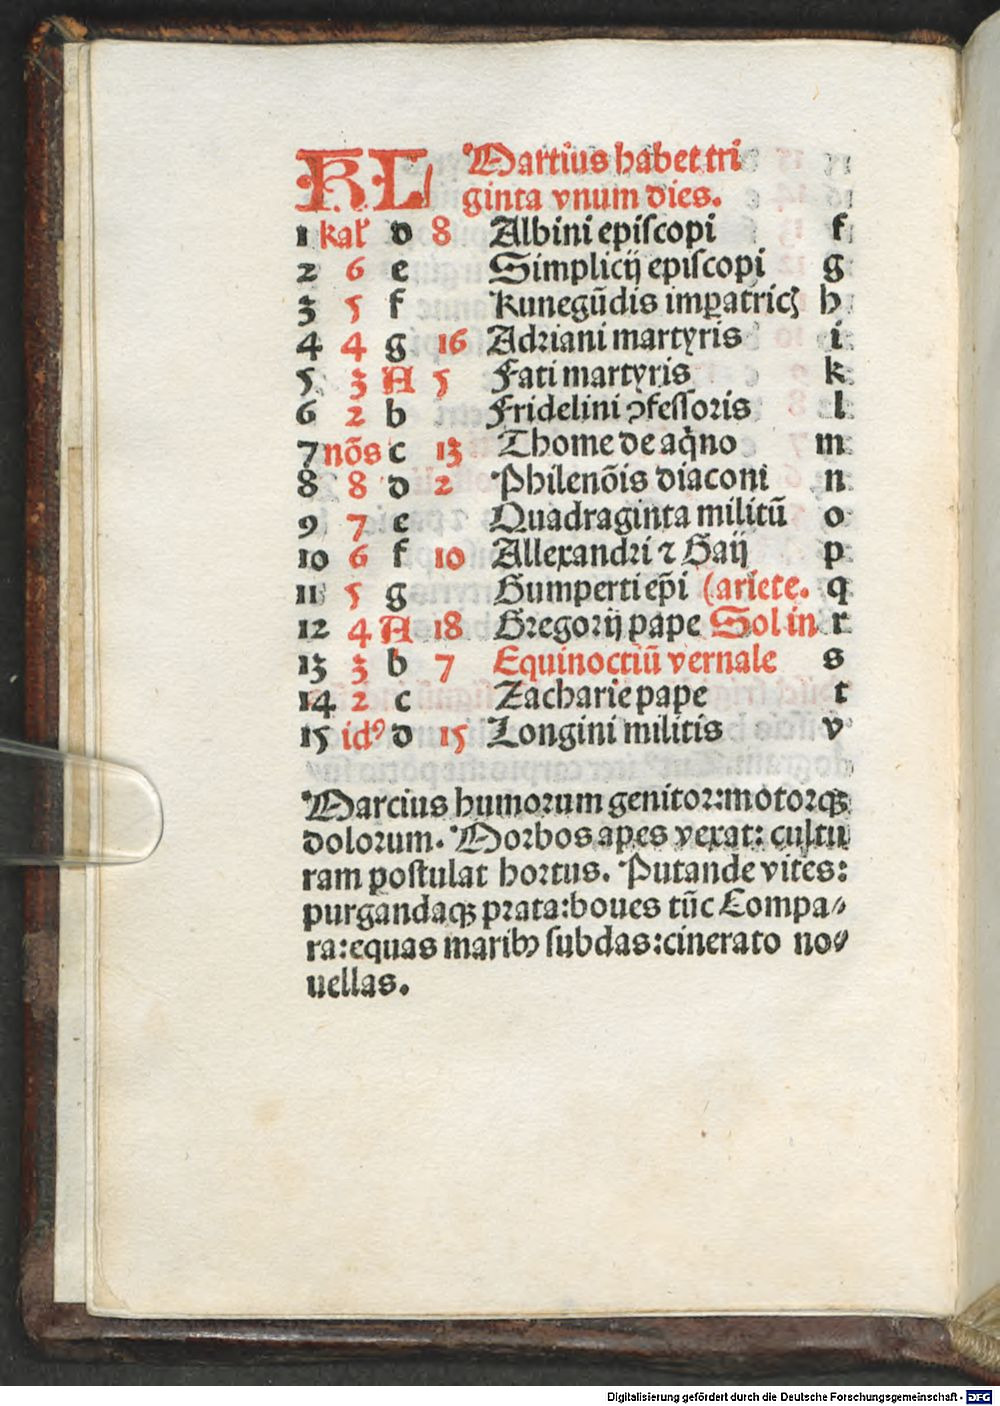 KL Martius habet tri
ginta vnum dies.
1 kał d 8 Albini epiſcopi f
2 6 e Simplicij epiſcopi g
3 5 f Kunegūdis imꝑatricꝭ h
4 4 g 16 Adꝛiani martyris i
5 3 A 5 Fati martyris k
6 2 b Fridelini ꝯfeſſoꝛis l
7 nōs c 13 Thome de aq̄no m
8 8 d 2 Philenōis diaconi n
9 7 e Quadraginta militū o
10 6 f 10 Allexandꝛi ⁊ Gaij p
11 5 g Gumperti ep̄i (ariete. q
12 4 A 18 Gꝛegoꝛij pape Sol in r
13 3 b 7 Equinoctiū vernale s
14 2 c Zacharie pape t
15 idꝰ d 15 Longini militis v
Marcius humoꝛum genitoꝛ:motoꝛqꝫ
doloꝛum. Moꝛbos apes vexat: cultu
ram poſtulat hoꝛtus. Putande vites:
purgandaqꝫ pꝛata:boues tūc Compa⸗
ra:equas maribꝰ ſubdas:cinerato no⸗
uellas.
Digitalisierung gefördert durch die Deutsche Forschungsgemeinschaft - DFG